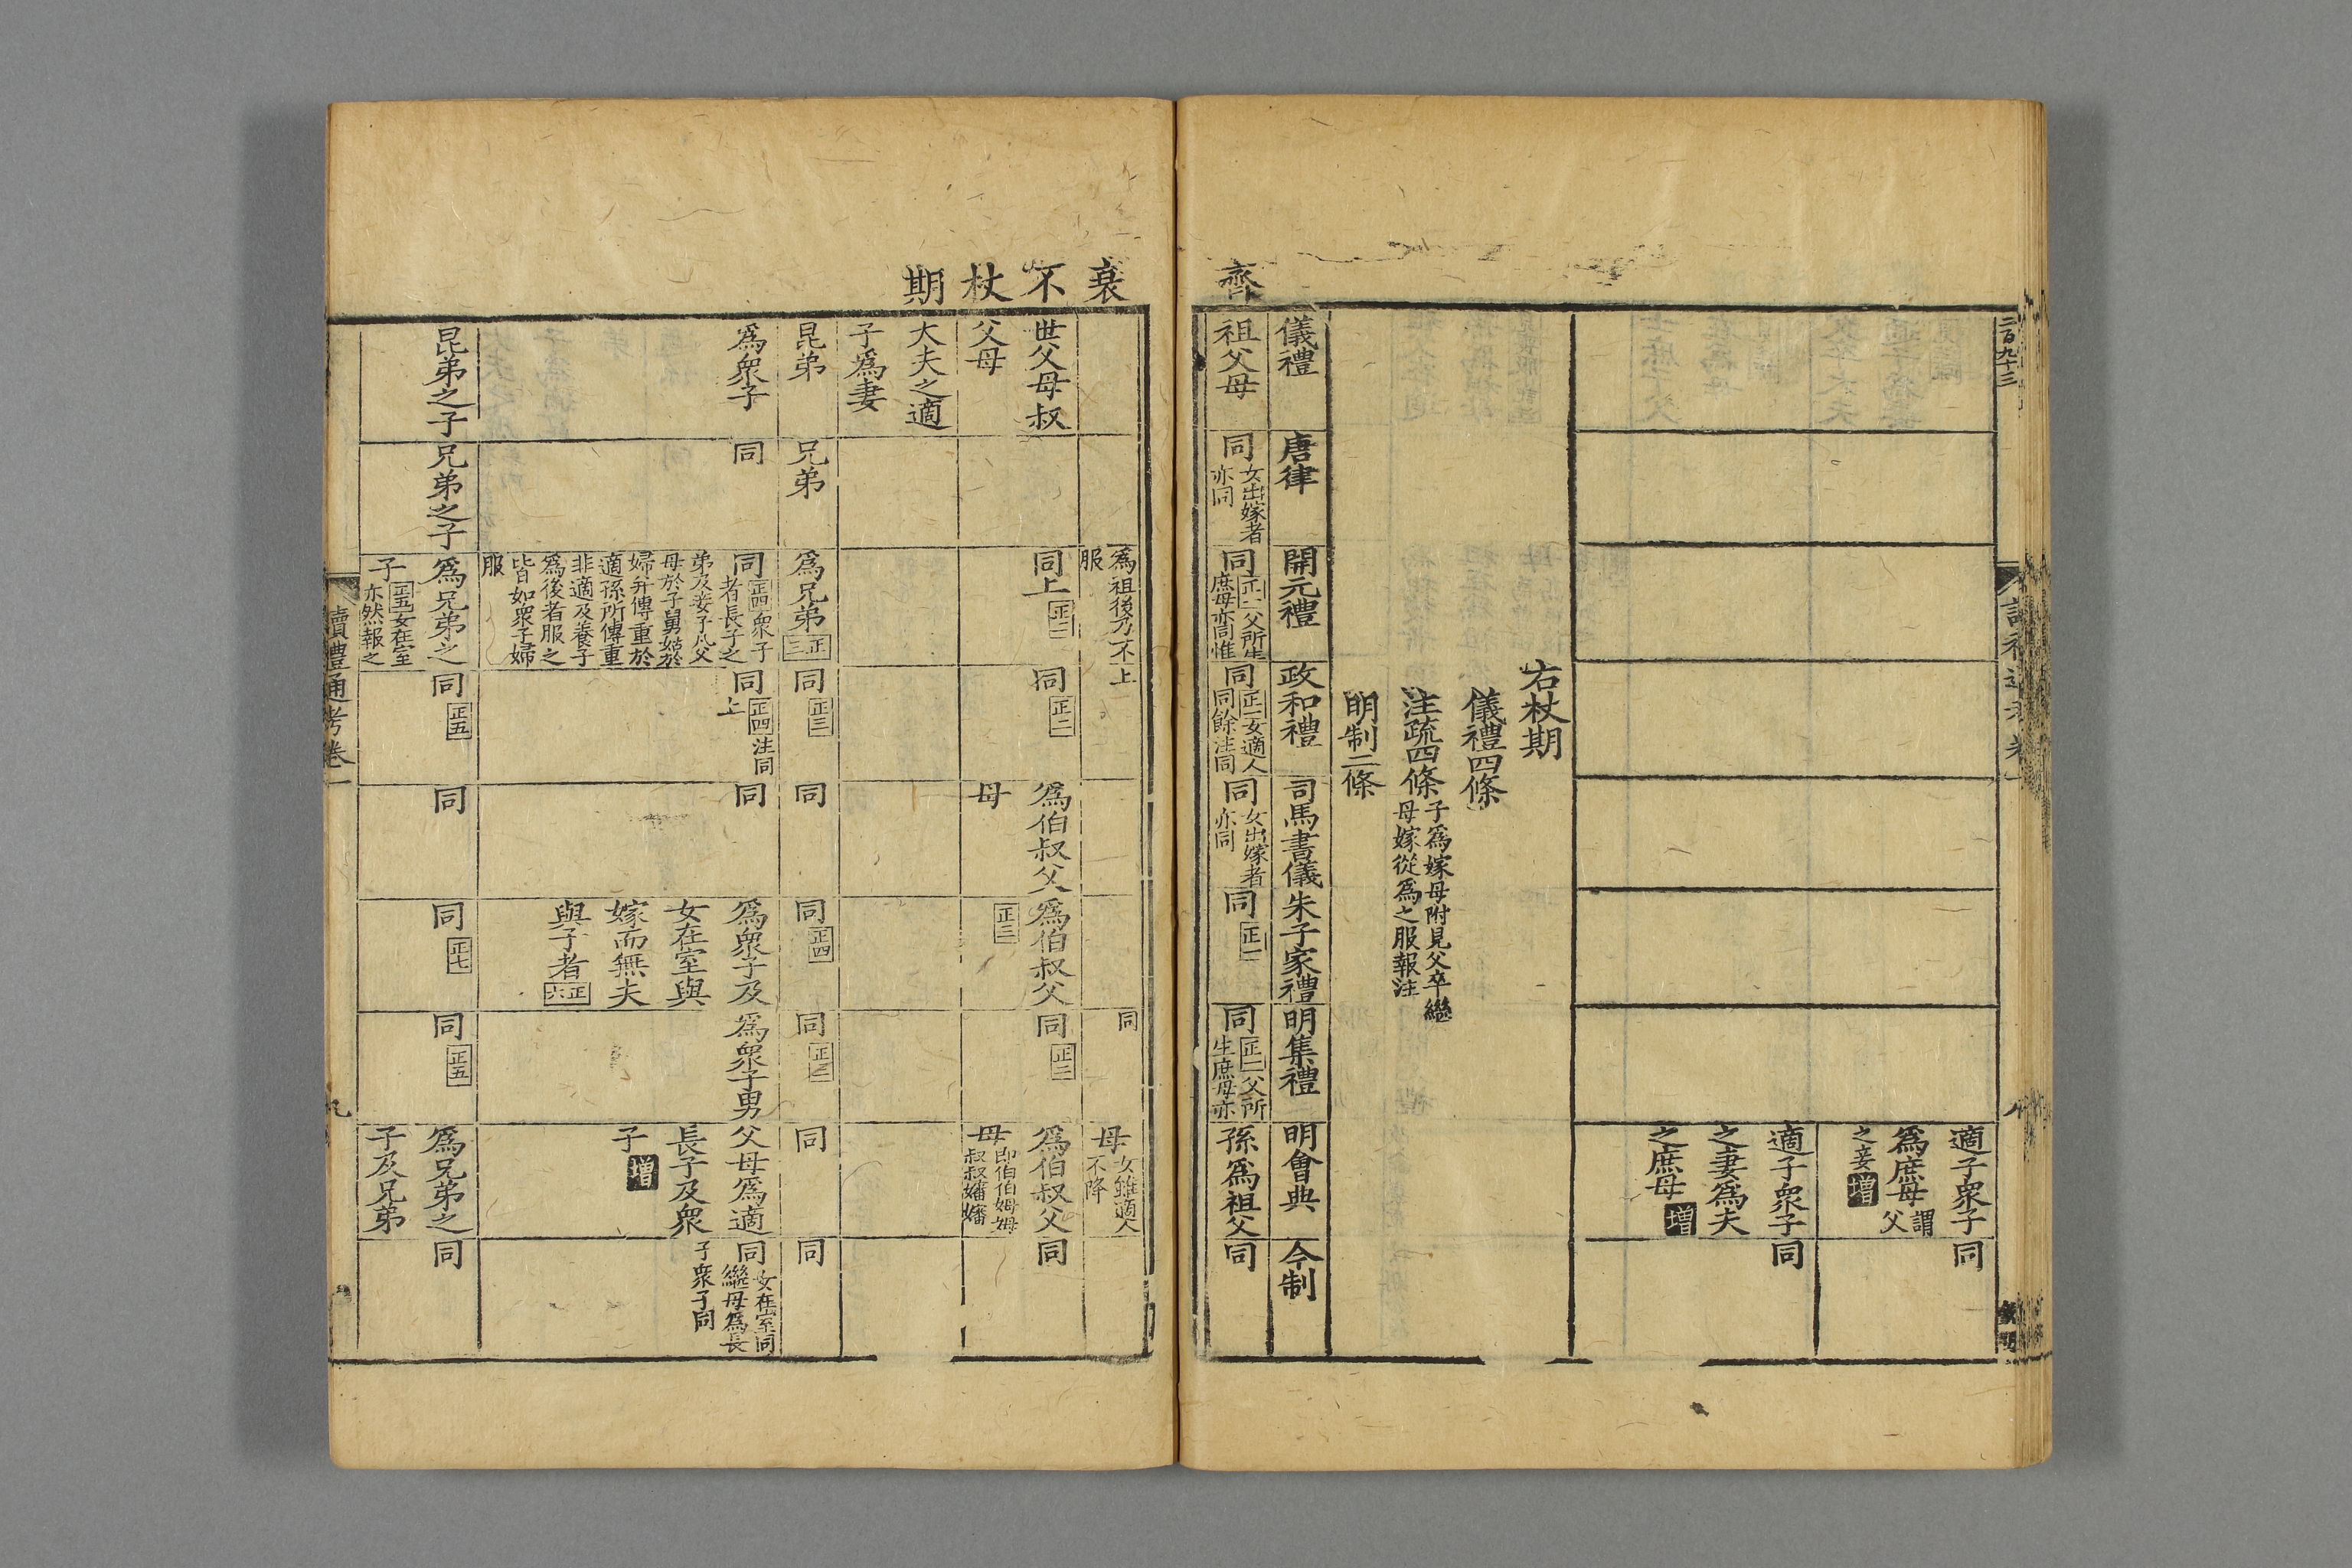 二百九十三
適子衆子
爲庶母謂父
之妾增
同
適子衆子
之妻爲夫
之庶母增
同
右杖期
儀禮四條
注疏四條子爲嫁母附見父卒繼
母嫁從爲之服報注
明制二條
齊
儀禮
唐律
開元禮
政和禮
司馬書儀
朱子家禮
明集禮
明會典
今制
祖父母
同女出嫁者
亦同
同正一父所生
庶母亦同惟
同正一女適人
同餘注同
同女出嫁者
亦同
同正一
同正一父所
生庶母亦
孫爲祖父
同
衰不杖期
爲祖後乃不
服
上
同
母女雖適人
不降
世父母叔
父母
同上正二
同正二
爲伯叔父
母
爲伯叔父
正三
同正二
爲伯叔父
母即伯伯姆姆
叔叔嬸嬸
同
大夫之適
子爲妻
昆弟
兄弟
爲兄弟正三
同正三
同
同正四
同正三
同
同
爲衆子
同
同正四衆子
者長子之
弟及妾子凡父
母於子舅姑於
婦并傳重於
適孫所傳重
非適及養子
爲後者服之
皆如衆子婦
服
同正四注同
上
同
爲衆子及
女在室與
嫁而無夫
與子者正六
爲衆子男
父母爲適
長子及衆
子增
同女在室同
繼母爲長
子衆子同
昆弟之子
兄弟之子
爲兄弟之
子正五女在室
亦然報之
同正五
同
同正七
同正五
爲兄弟之
子及兄弟
同
讀禮通考卷一
九